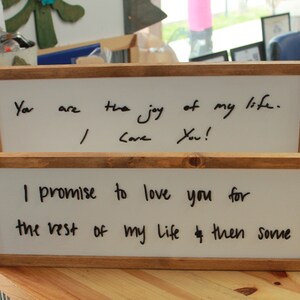 You are the joy of my life.
I Love You!
I promise to love you for
the rest of my life & then some